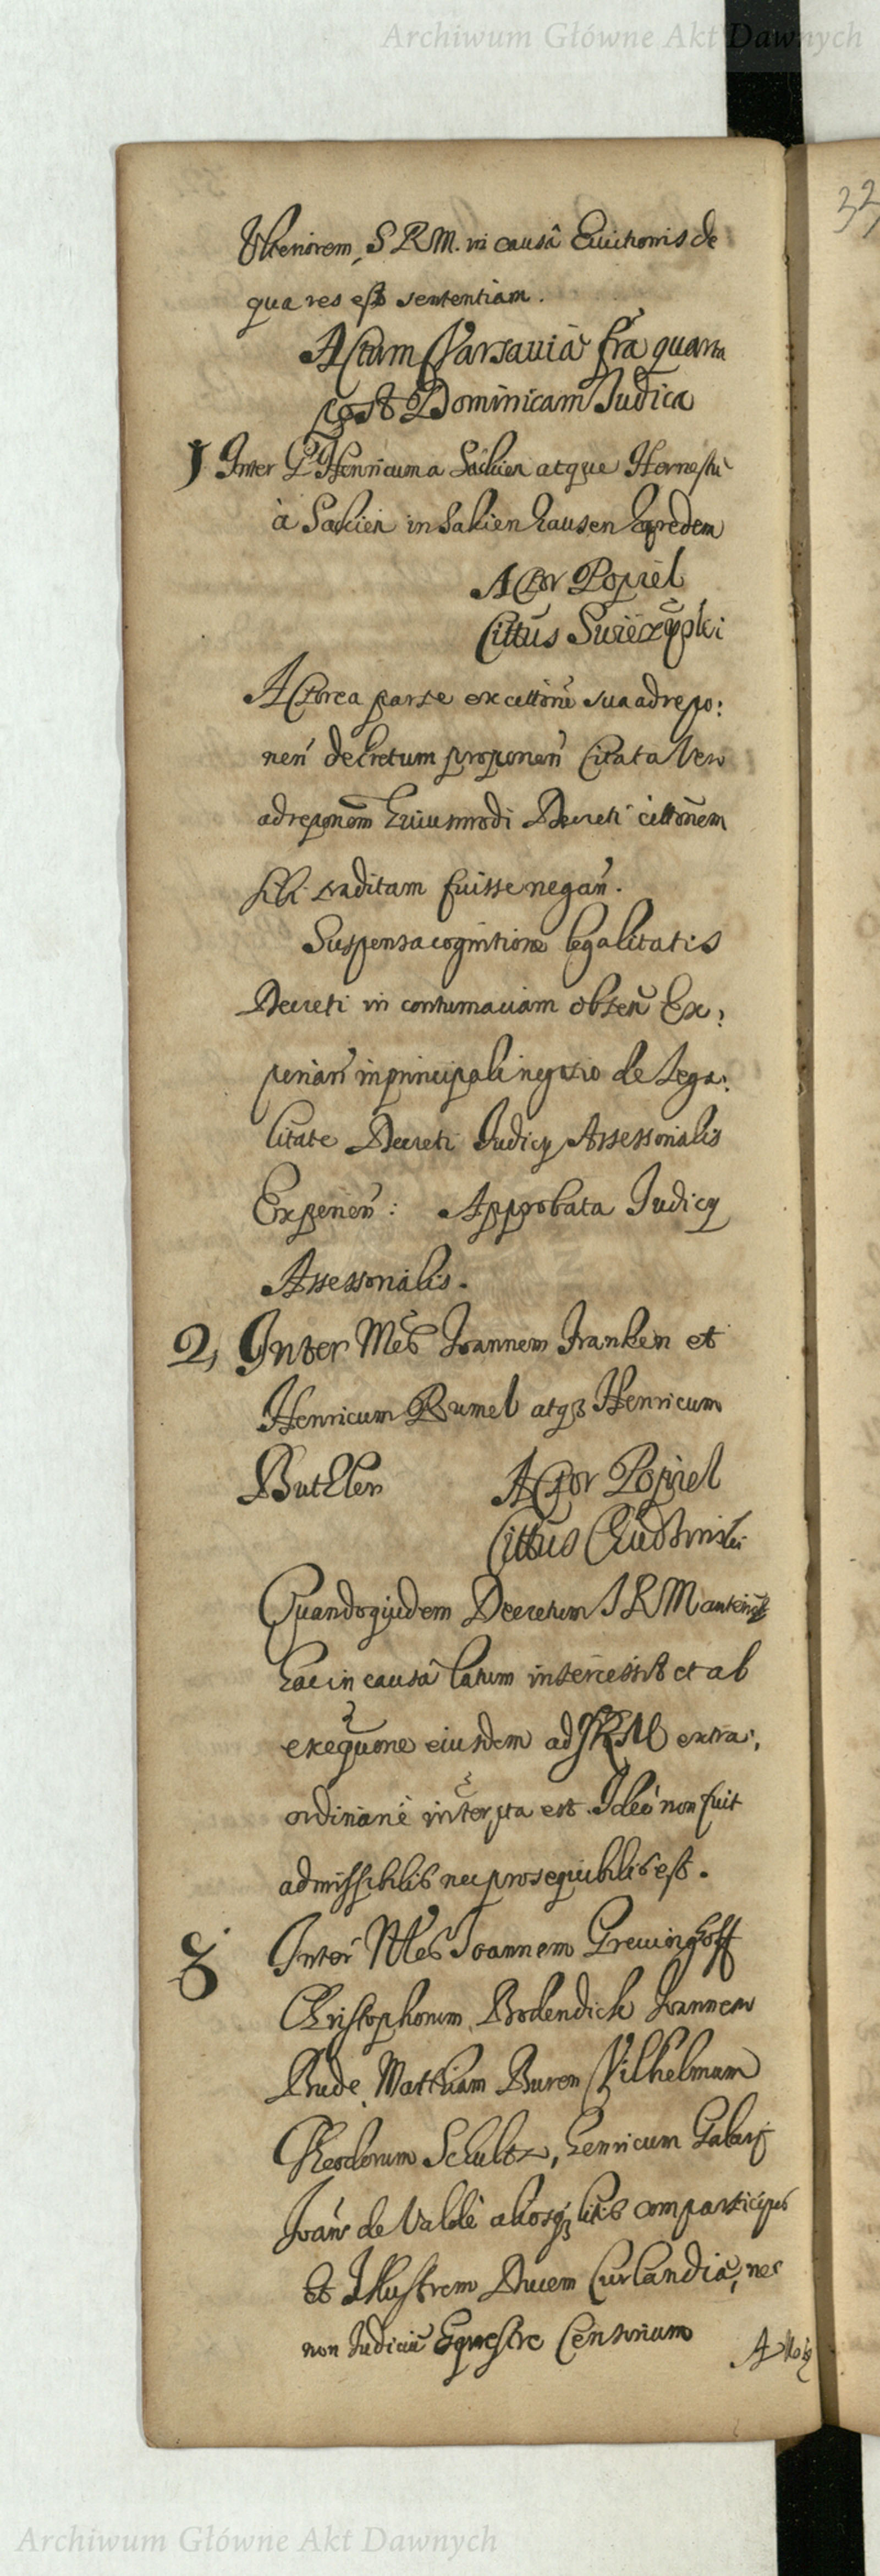 Archiwum Główne Akt Dawnych
32
Ulteriorem S R M. in causâ Evictionis de
qua res est sententiam.
Actum Varsaviæ fra quarta
post Dominicam Judica
1 Inter G Henricum a Sacken atque Hernestū
à Sacken in Sakien hausen hæredem
Actor Popiel
Cittus Swięczyski
Actorea parte ex cittōne sua ad repo:
nen̄ decretum proponen̄ Citata Vero
ad reponēm huiusmodi Decreti cittōnem
sibi traditam fuisse negan̄.
Suspensa cognitione legalitatis
Decreti in contumaciam obten̄ Ex:
perian̄ in principali negotio de Lega:
litate Decreti Judicy Assessorialis
Experien̄: Approbata Judicy
Assessorialis.
2, Inter Nles Joannem Franken et
Henricum Rumel atqз Henricum
Buthler Actor Popiel
Cittus Chudzinski
Quandoquidem Decretum S R M anterius
hac in causâ latum intercessit et ab
exequōne eiusdem ad SRM extra:
ordinariè interpta est. Ideò non fuit
admissibilis nec prosequibilis est.
3 Inter Nles Joannem Grevinghoff
Christophorum Brodendick Joannem
Bude, Matthiam Buren Vilhelmum
Theodorum Schultz, henricum
Joan̄ de Valde aliosqз litis comparticipes
Et Illustrem Ducem Curlandiæ, nec
non Judiciū Equestre Censorium